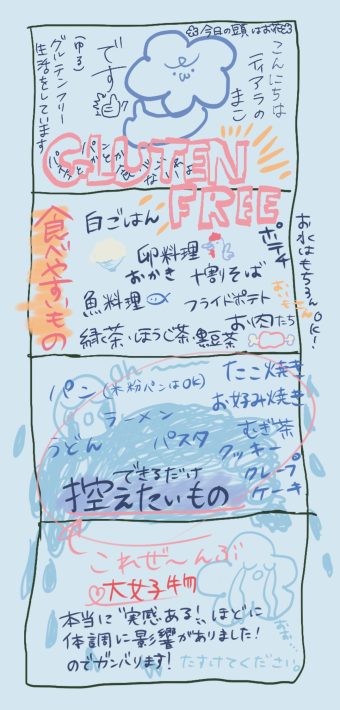 ✿今日の頭はお花✿
こんにちは
ティアラの
まこ
です
(ゆる)
グルテンフリー
生活をしています
GLUTEN
FREE
食べやすいもの
白ごはん
卵料理
ポテチ
おかき
十割そば
魚料理
フライドポテト
お肉たち
緑茶・ほうじ茶・黒豆茶
お水はもちろんOK!
パン(米粉パンはOK)
たこ焼き
お好み焼き
ラーメン
むぎ茶
うどん
パスタ
クッキー
クレープ
ケーキ
できるだけ
控えたいもの
これぜ〜んぶ
♡大好物
本当に“実感ある!”ほどに
体調に影響がありました!
のでガンバります!
たすけてください。